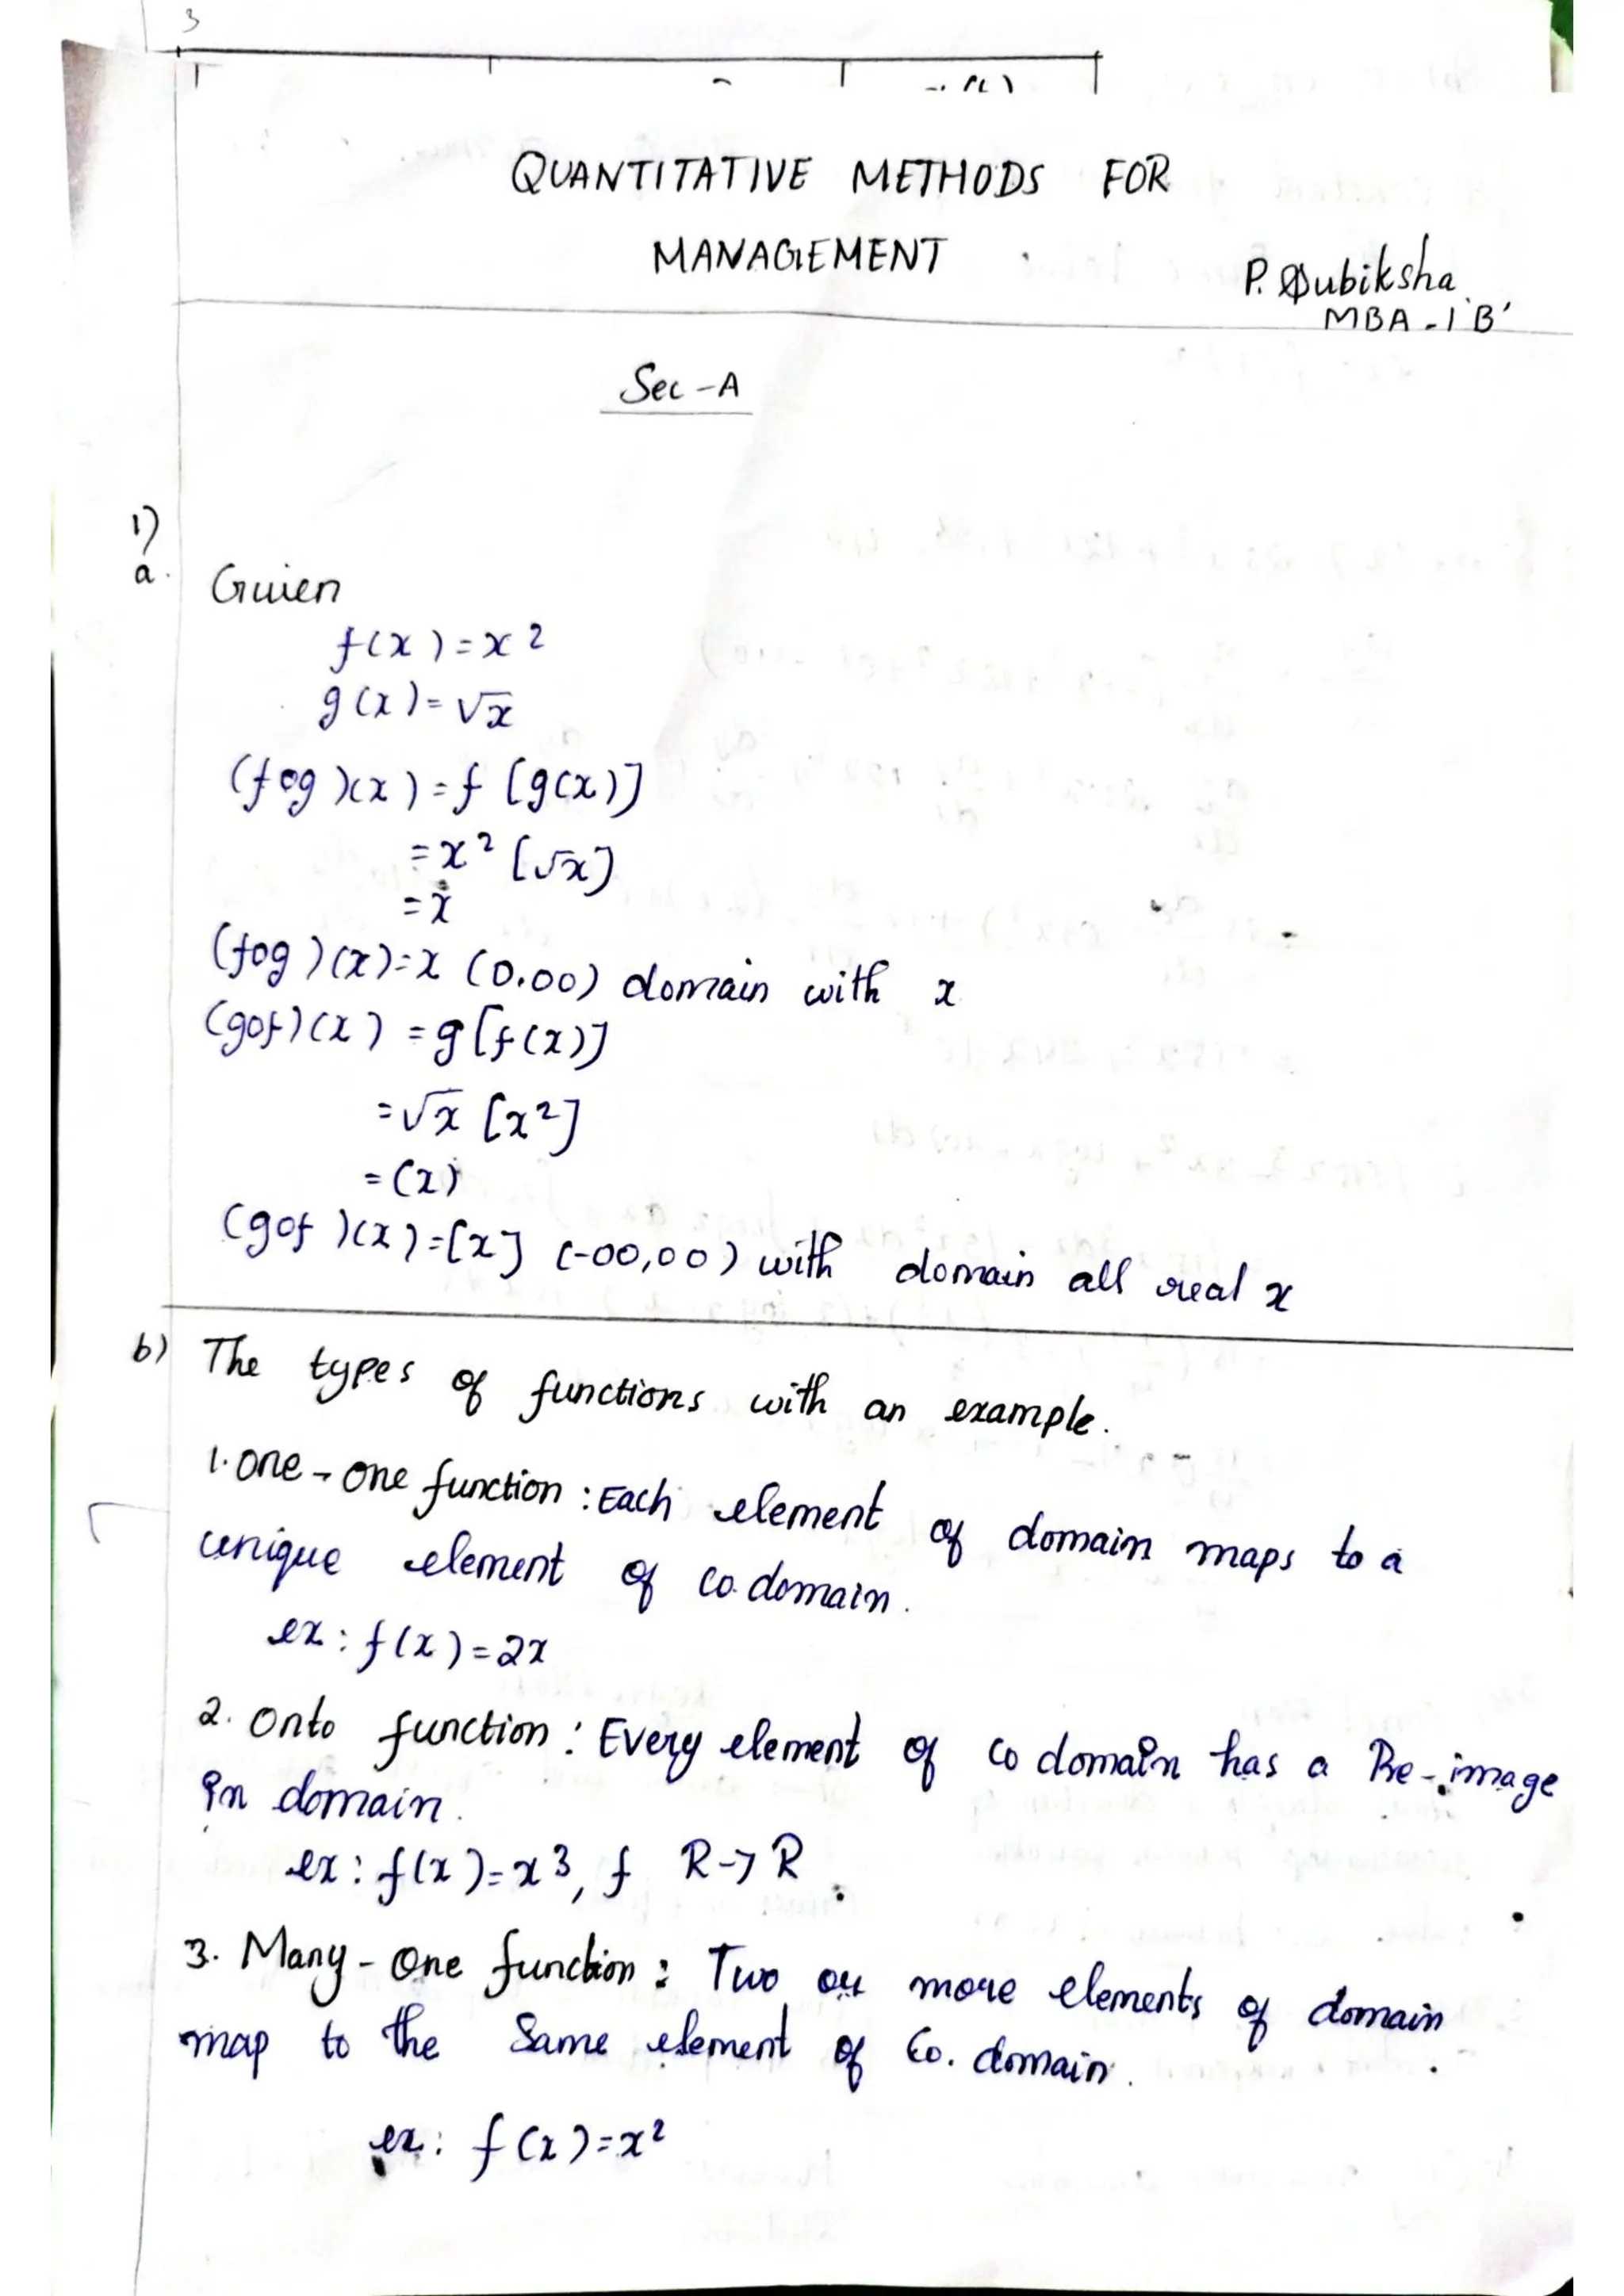 3
QUANTITATIVE METHODS FOR
MANAGEMENT
P. Subiksha
MBA - I 'B'
Sec - A
1)
a.
Given
f(x) = x²
g(x) = √x
(fog)(x) = f [g(x)]
= x² [√x]
= x
(fog)(x) = x (0,00) domain with x
(gof)(x) = g[f(x)]
= √x [x²]
= (x)
(gof)(x) = [x] (-00,00) with domain all real x
b) The types of functions with an example.
1. One - One function : Each element of domain maps to a
unique element of co.domain.
ex : f(x) = 2x
2. Onto function : Every element of co domain has a Pre-image
in domain.
ex : f(x) = x³, f R→R
3. Many - One function : Two or more elements of domain
map to the Same element of Co. domain.
ex : f(x) = x²